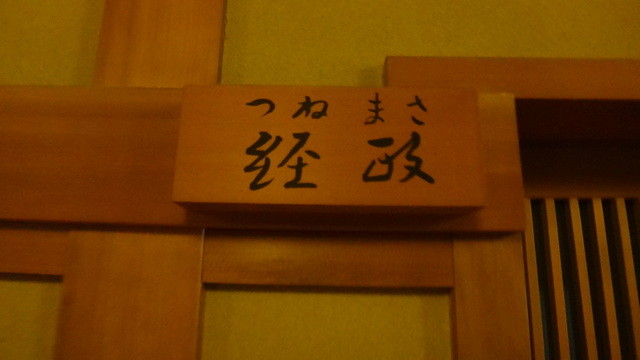 つねまさ
経政